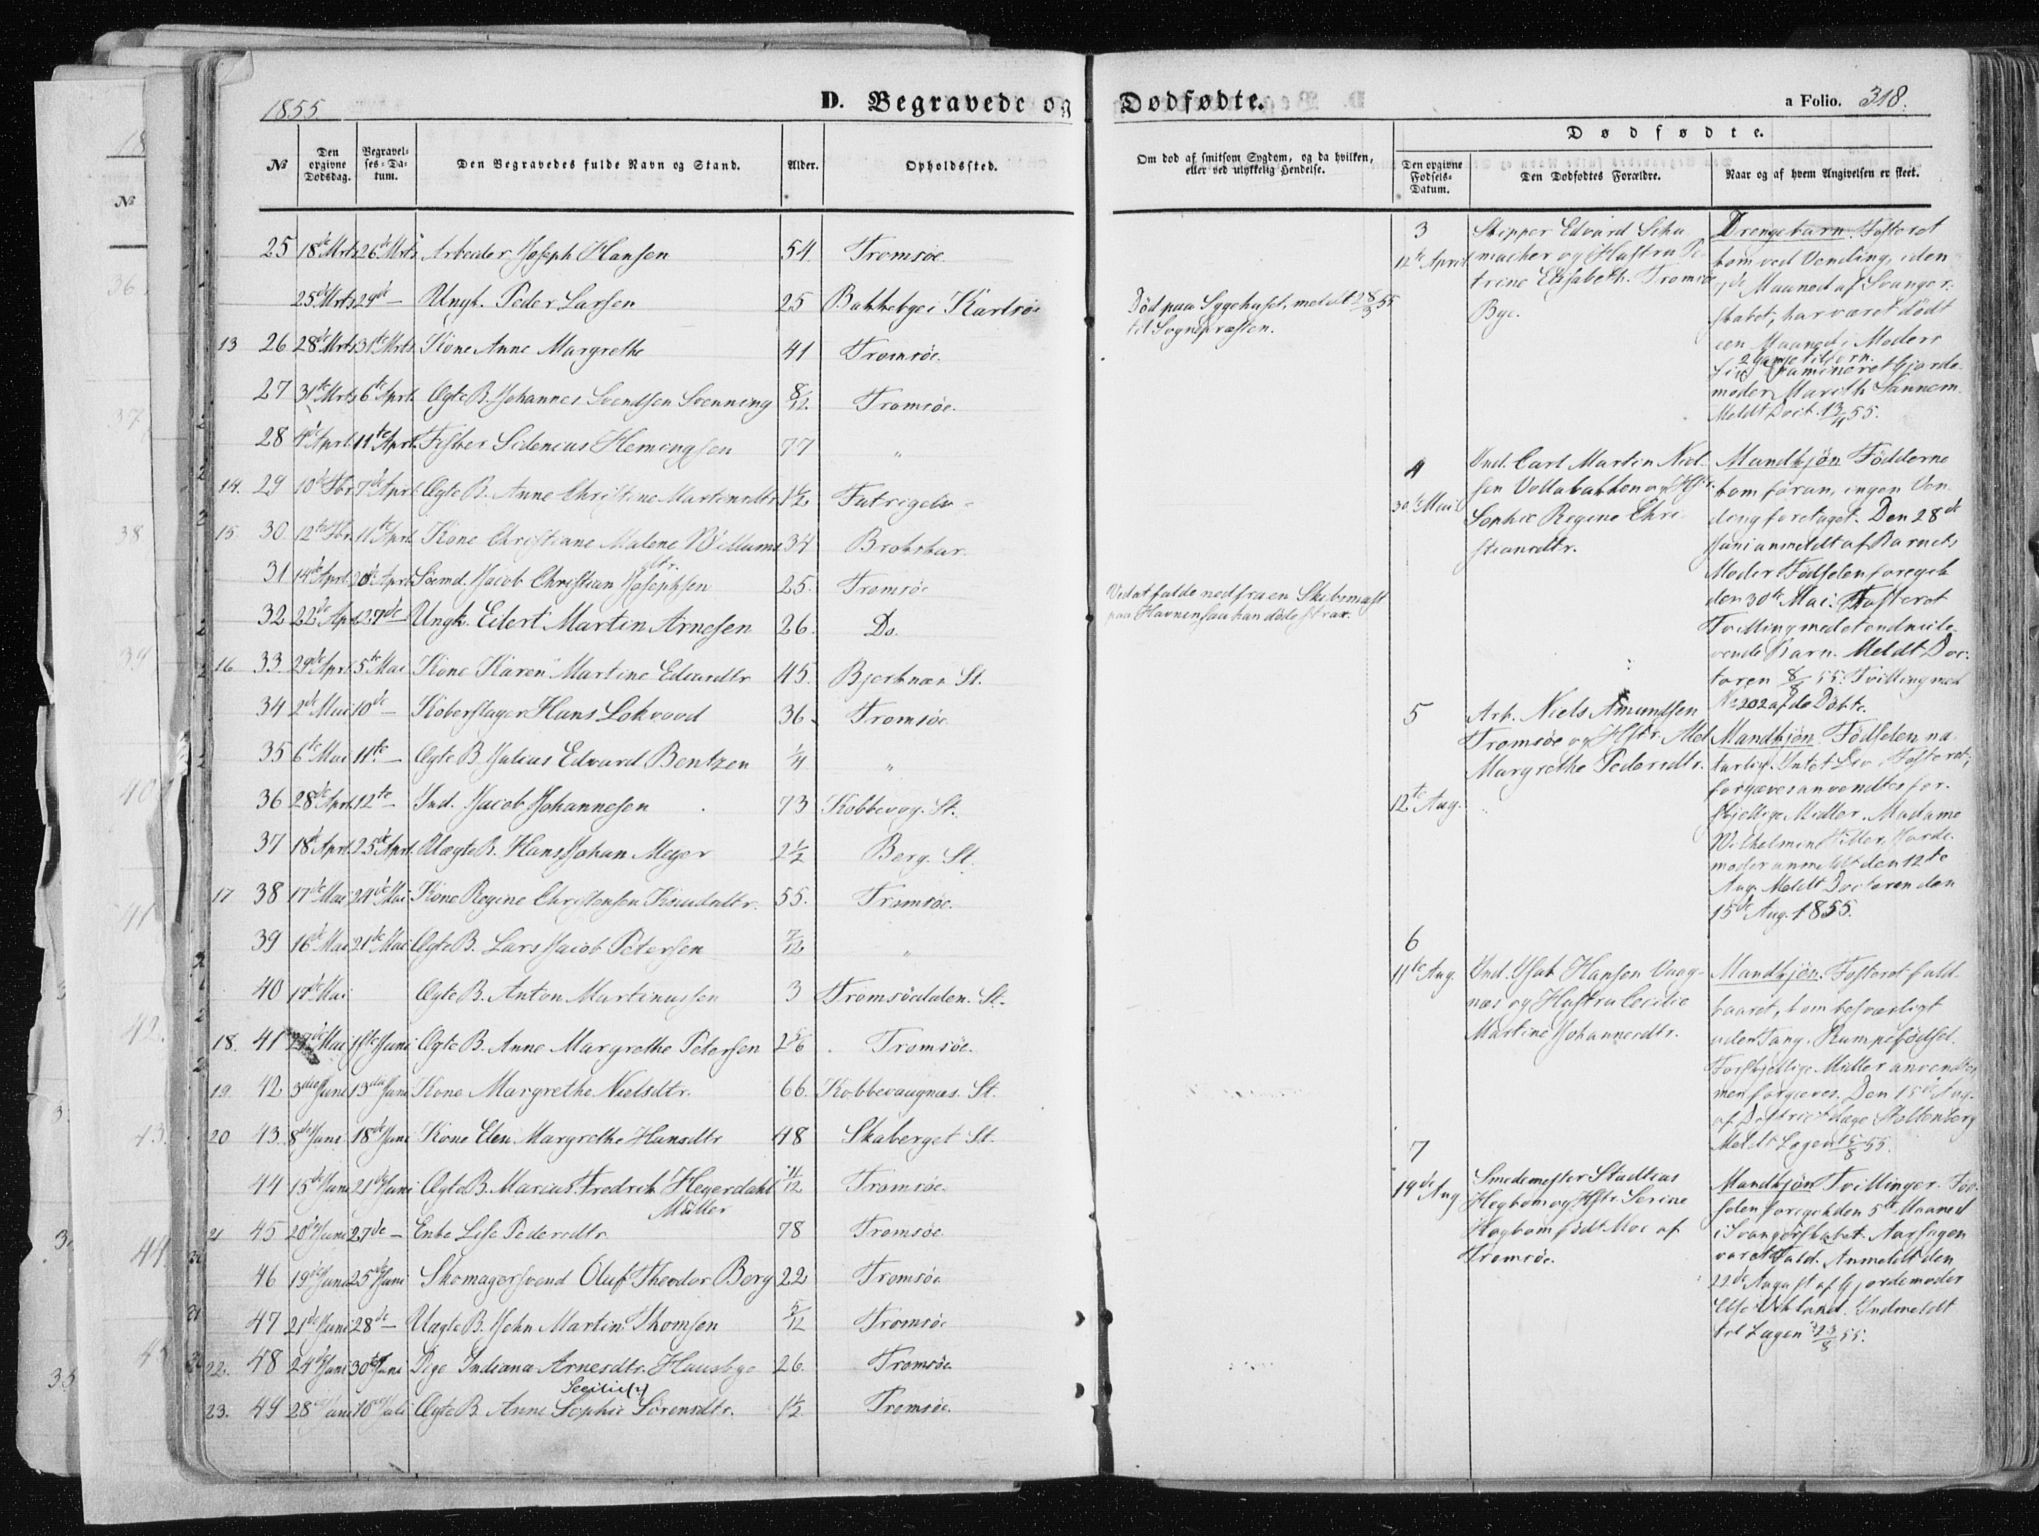 1855
D. Begravede og Dødfødte.
a Folio. 318.
Dødfødte.
№ Den opgivne Dødsdag. Begravelses-Datum. Den Begravedes fulde Navn og Stand. Alder. Opholdssted.
Om død af smitsom Sygdom, og da hvilken, eller ved ulykkelig Hendelse.
Den opgivne Fødsels-Datum. Den Dødfødtes Forældre. Naar og af hvem Angivelsen er skeet.
25 18de Mrts 26de Mrts Arbeider Joseph Hansen 54 Tromsøe
25de Mrts 29de — Ungk. Peder Larsen 25 Bakkebye i Karlsøe Død paa Sygehuset, meldt 28/3 55 til Sognepræsten.
13 26 28de Mrts 31te Mrts Kone Anne Margrethe 41 Tromsøe.
27 31te Mrts 6te Aprl. Ægte B. Johannes Svendsen Svenning 8/12 Tromsøe.
28 4de Aprl. 11te Aprl. Fisker Sidenius Hemingsen 77 "
14. 29 7de Aprl. Ægte B. Anne Christine Martinsdtr 1 1/2
15. 30. 11te Aprl. Kone Christiane Malene Willumsdtr. 34
31 14de Aprl. 20de Aprl. Søemd. Jacob Christian Josephsen 25. Tromsøe
32 22de Apr 27de — Ungk. Eilert Martin Arnesen 26. Do. Ved at falde ned fra en Skibsmast paa Havnen saa han døde strax.
16 33. 29de Aprl 5te Mai Kone Karen Martine Edvardtr 45. Bjerknæs St.
34 2de Mai 10de — Koberslager Hans Lokvood 36. Tromsøe
35 6te Mai 11te — Ægte B. Julius Edvard Bentzen 1/4 "
36 28de Aprl. 12te — Ind. Jacob Johannesen 73 Kobbevog. St.
37 18de Aprl 25de Aprl Uægte B. Hans Johan Meyer 2 1/2 Berg. St.
17 38 17de Mai 24de Mai Kone Regine Christensen Knudsdtr. 55. Tromsøe.
39 16de Mai 21de Mai Ægte B. Lars Jacob Petersen 7/12 "
40 17de Mai Ægte B. Anton Martinussen 3 Tromsødalen. St.
18. 41 27de Mai 1ste Juni Ægte B. Anne Margrethe Petersen 2 5/6 Tromsøe.
19. 42 3die Juni 13de Juni Kone Margrethe Nielsdtr. 66. Kobbevaagnæs. St.
20 43. 8de Juni 18de Juni Kone Elen Margrethe Hansdtr 48 Skaberget St.
44 15de Juni 21de Juni Ægte B. Marcus Fredrik Heyerdahl Müller 11/12 Tromsøe.
21 45 20de Juni 27de — Enke Lise Pedersdtr 78 Tromsøe.
46 19de Juni 25de Juni Skomagersvend Oluf Theodor Berg 22 Tromsøe
47 21de Juni 28de — Uægte B. John Martin Thomsen 5/12 Tromsøe
22. 48 24de Juni 30te Juni Pige Indiana Arnesdtr. Hausbye 26. Tromsøe
23. 49 28de Juni 10de Juli Ægte B. Anne Sophie Sørensdtr. 1 1/2 Tromsøe.
3
12te April
Skipper Edvard Schu
macher og Hustru Pe
trine Elisabeth. Tromsøe
Bye.
Drengebarn. Fosteret
kom ved Vending, i den
Maaned af Svanger-
skabet, har været dødt
een Maaned i Moders
Liv
moder Mareth Sannem.
Meldt Doct. 13/4 55.
4
30te Mai
Ind. Carl Martin Niel
sen Vollabakken og Hstr.
Sophie Regine Chri
stiansdtr.
Mandkjøn Fødderne
kom foran, ingen Ven
ding foretaget. Den 28de
Juni anmeldt af Barnets
Moder. Fødselen foregik
den 30te Mai. Fosteret
Tvilling med et endnu le-
vende Barn. Meldt Doc-
toren 8/8 55. Tvilling med
No 202 af de Døbte.
5
12te Aug.
Arb. Niels Amundsen
Tromsøe og Hstr. Mel
Margrethe Pedersdtr.
Mandkjøn. Fødselen na-
turlig. Intet Liv i Fosteret,
forgæves anvendtes for-
skjellige Midler. Madame
Wilhelmine Hiller, Jorde-
moder anmeldt den 12te
Aug. Meldt Doctoren den
15de Aug. 1855.
6
11te Aug.
Ind. Isak Hansen Vaag-
næs og Hustru Cecilie
Martine Johannesdtr.
Mandkjøn. Fosteret fuld-
baaret, kom besværligt
uden Tang. Rumpefødsel.
Forskjellige Midler anvendtes
men forgjæves. Den 15de Aug.
af Districtslæge Stoltenberg
Meldt Lægen 15/8 55.
7
19de Aug
Smedemester Stadtius
Høgbom og Hstr. Serine
Høgbom født Moe af
Tromsøe.
Mandkjøn Tvillinger. Fød-
selen foregik den 5te Maaned
i Svangerskabet. Aarsagen
var et Fald. Anmeldt den
22de August af Gjordemoder
Else Vikland. Indmeldt
til Lægen 23/8 55.